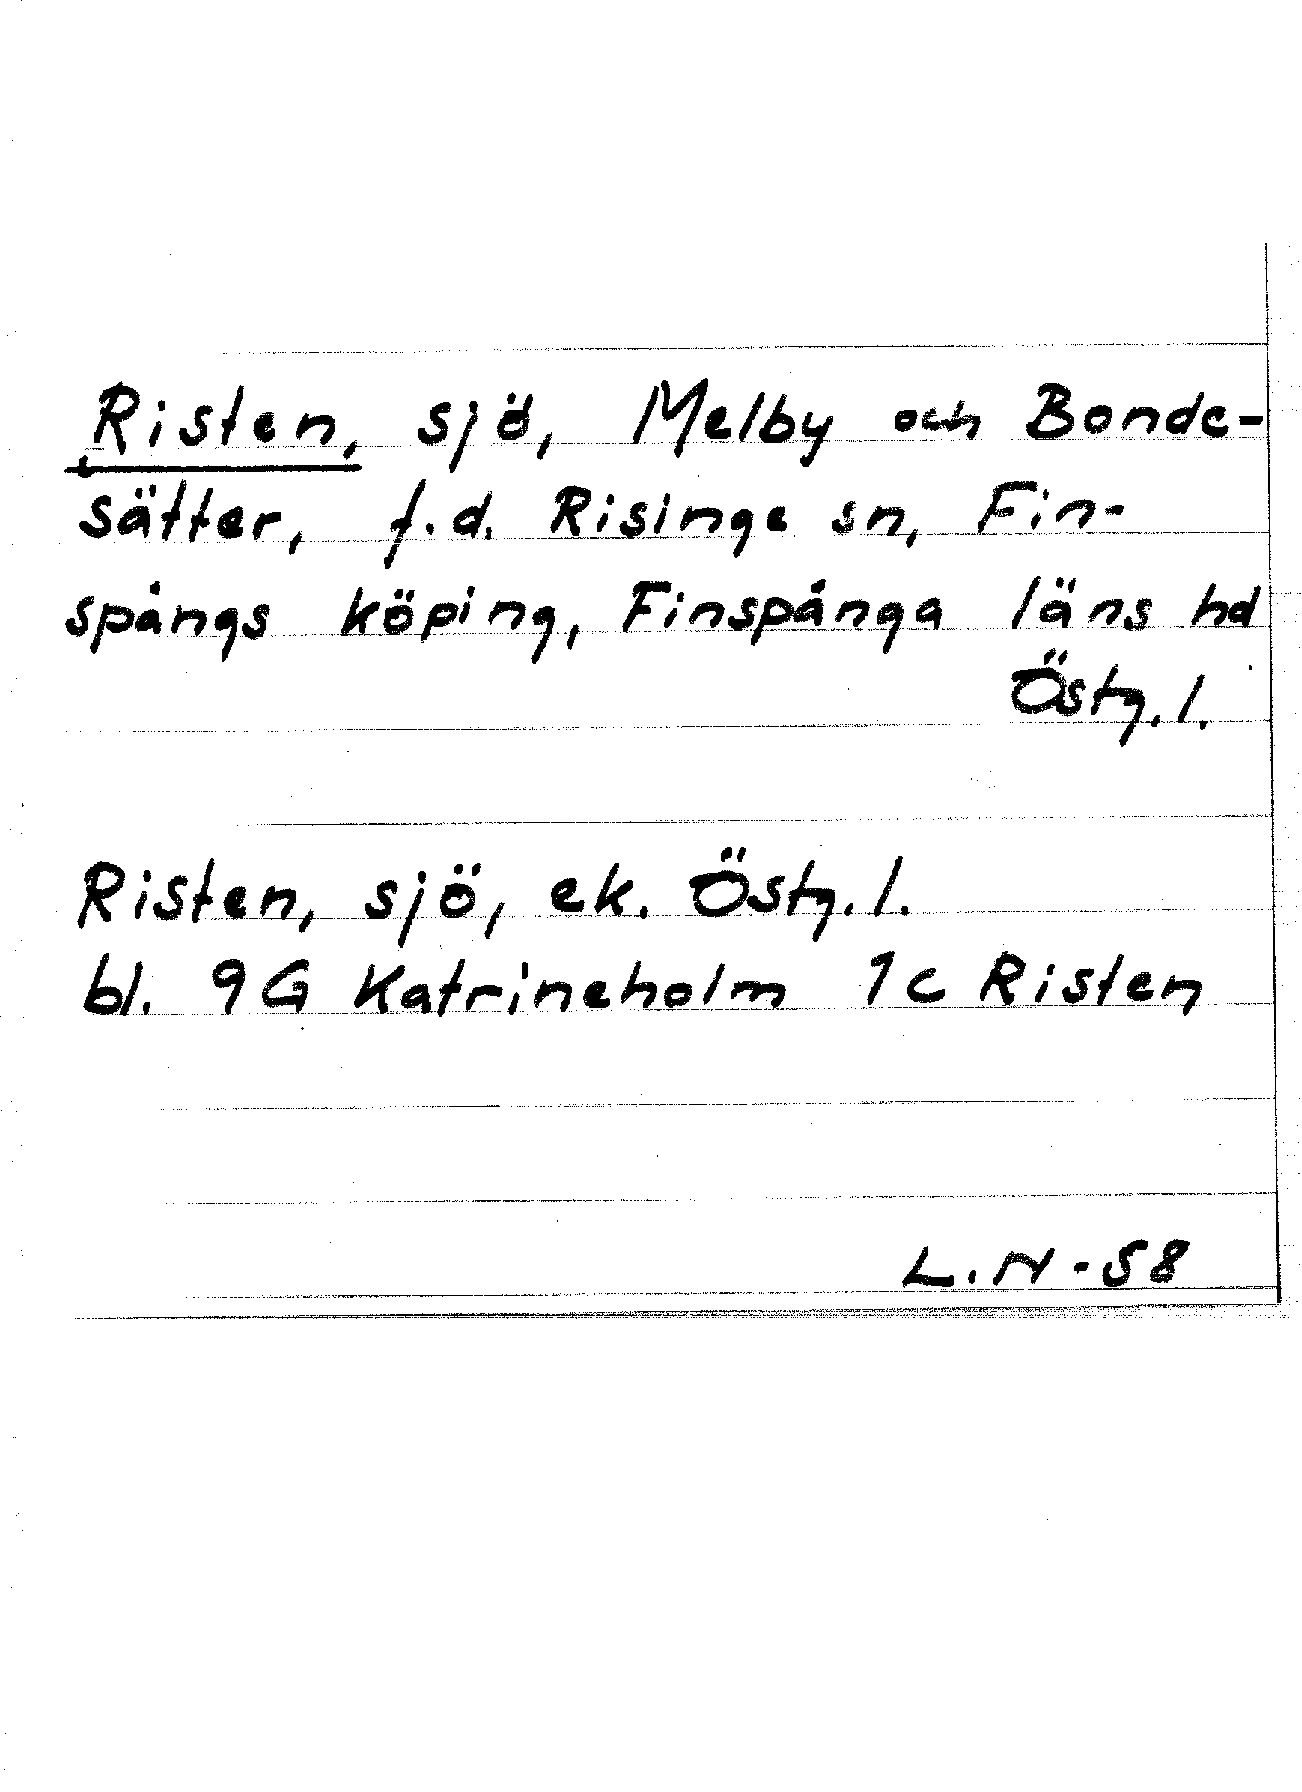 Risten, sjö, Melby och Bonde-
sätter, f.d. Risinge sn, Fin-
spångs köping, Finspånga läns hd
Östg.l.
Risten, sjö, ek. Östg.l.
bl. 9G Katrineholm 1c Risten
L.N-58